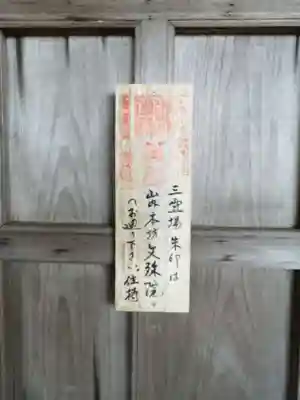 三霊場 朱印は
山内本坊文殊院。
へお廻り下さい。住持